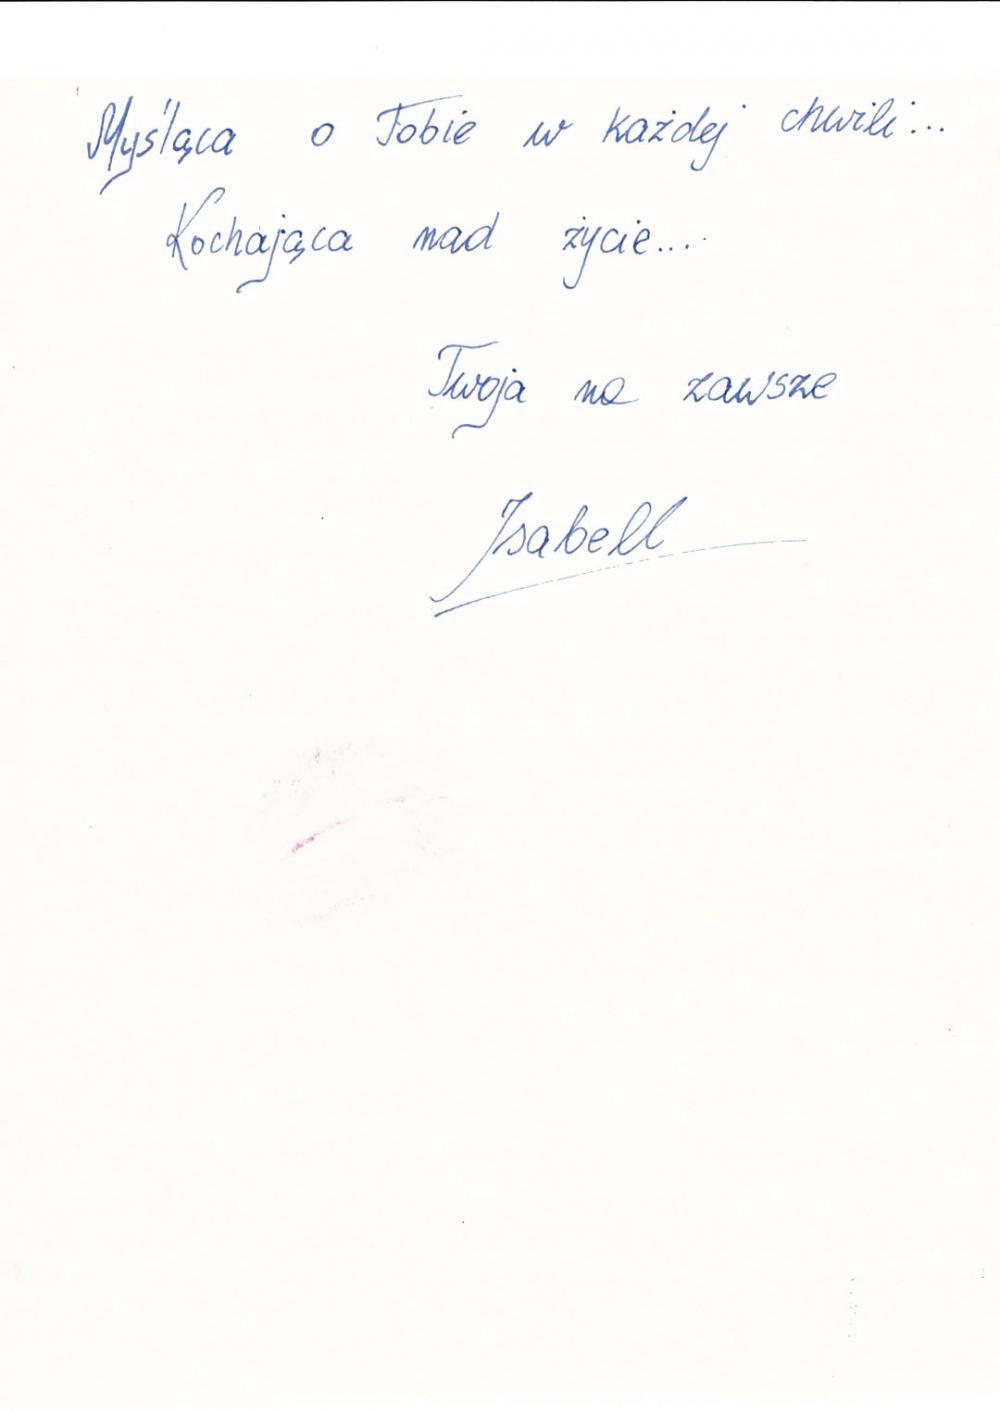 Myśląca o Tobie w każdej chwili...
Kochająca nad życie....
Twoja na zawsze
Isabell